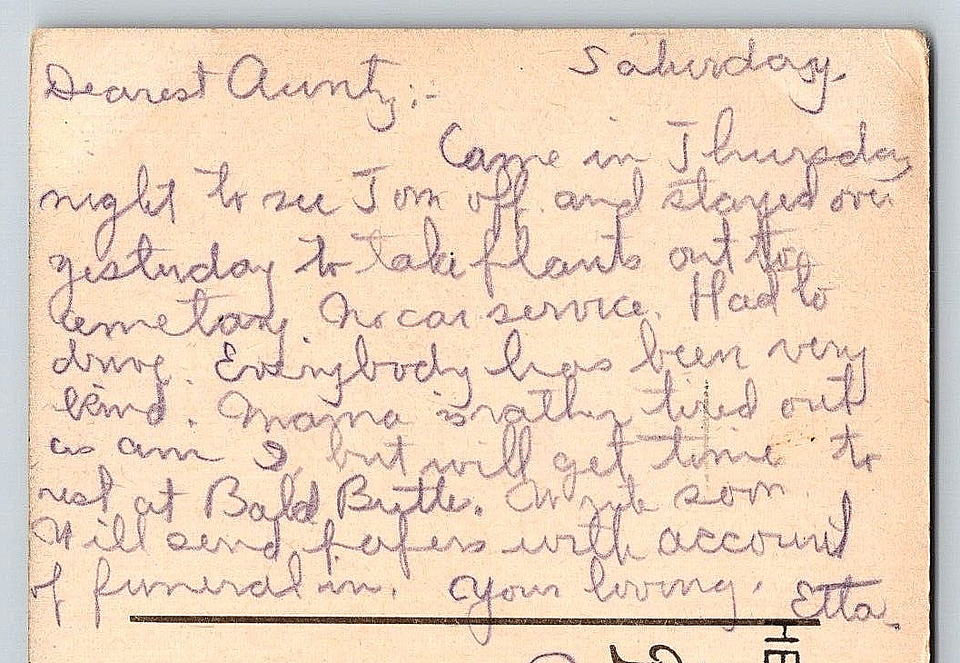 Saturday.
Dearest Aunty;-
Came in Thursday
night to see Tom off. and stayed over
yesterday to take plants out to
cemetary. No car service. Had to
drive. Everybody has been very
kind. Mama is rather tired out
as am I, but will get time to
rest at Bald Butte. Write soon.
Will send papers with account
of funeral in. Your loving. Etta.
HE